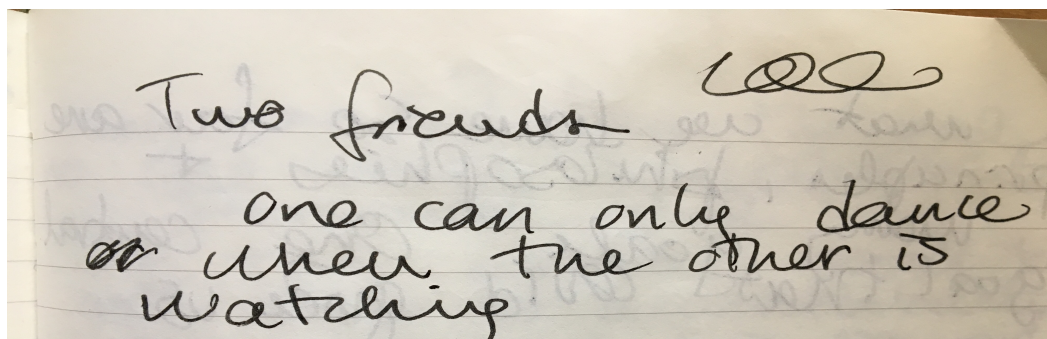 Two friends
one can only dance
when the other is
watching